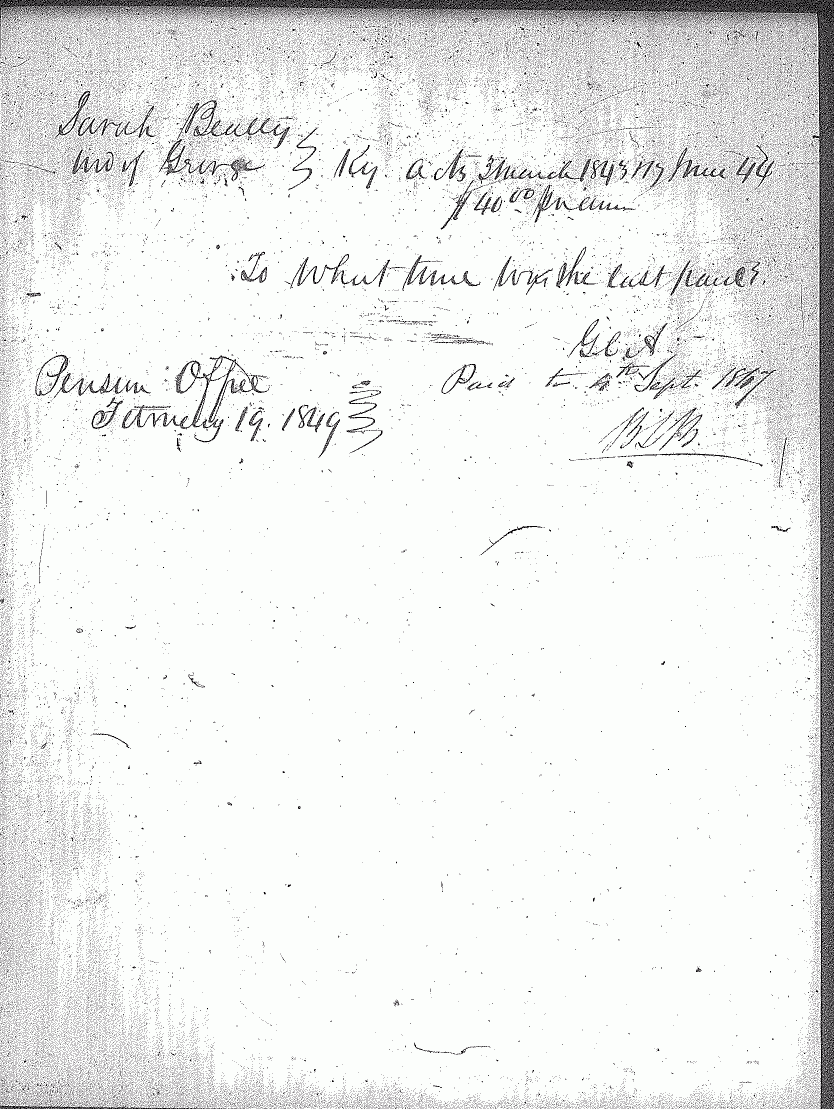 Sarah Beatty
Wid of George } Ky. acts 3 March 1843 & 17 June 44
$40.00 pr ann
To what time was she last paid?
G C A
Pension Office
February 19. 1849
Paid to 4th Sept. 1847
B L B